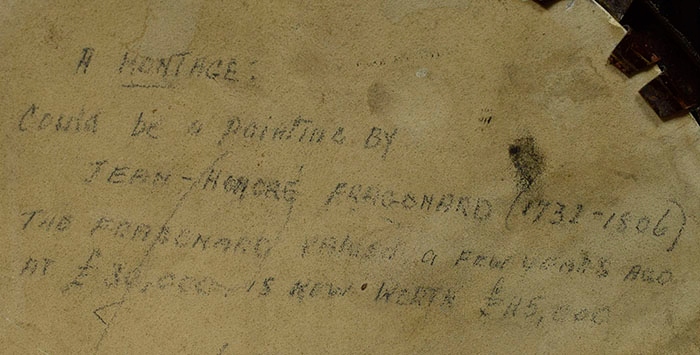 A MONTAGE:
Could be a painting BY
JEAN-HONORÉ FRAGONARD (1732-1806)
THE FRAGONARD VALUED A FEW YEARS AGO
AT £30,000 IS NOW WORTH £115,000